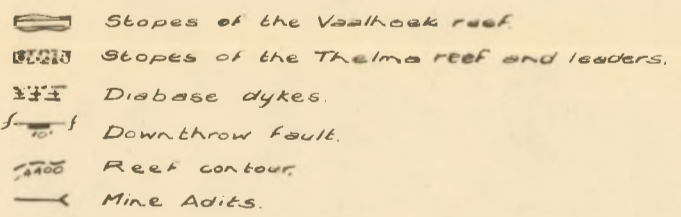 Stopes of the Vaalhoek reef.
Stopes of the Thelma reef and leaders.
Diabase dykes.
f f 10' Downthrow fault.
4400 Reef contour.
Mine Adits.